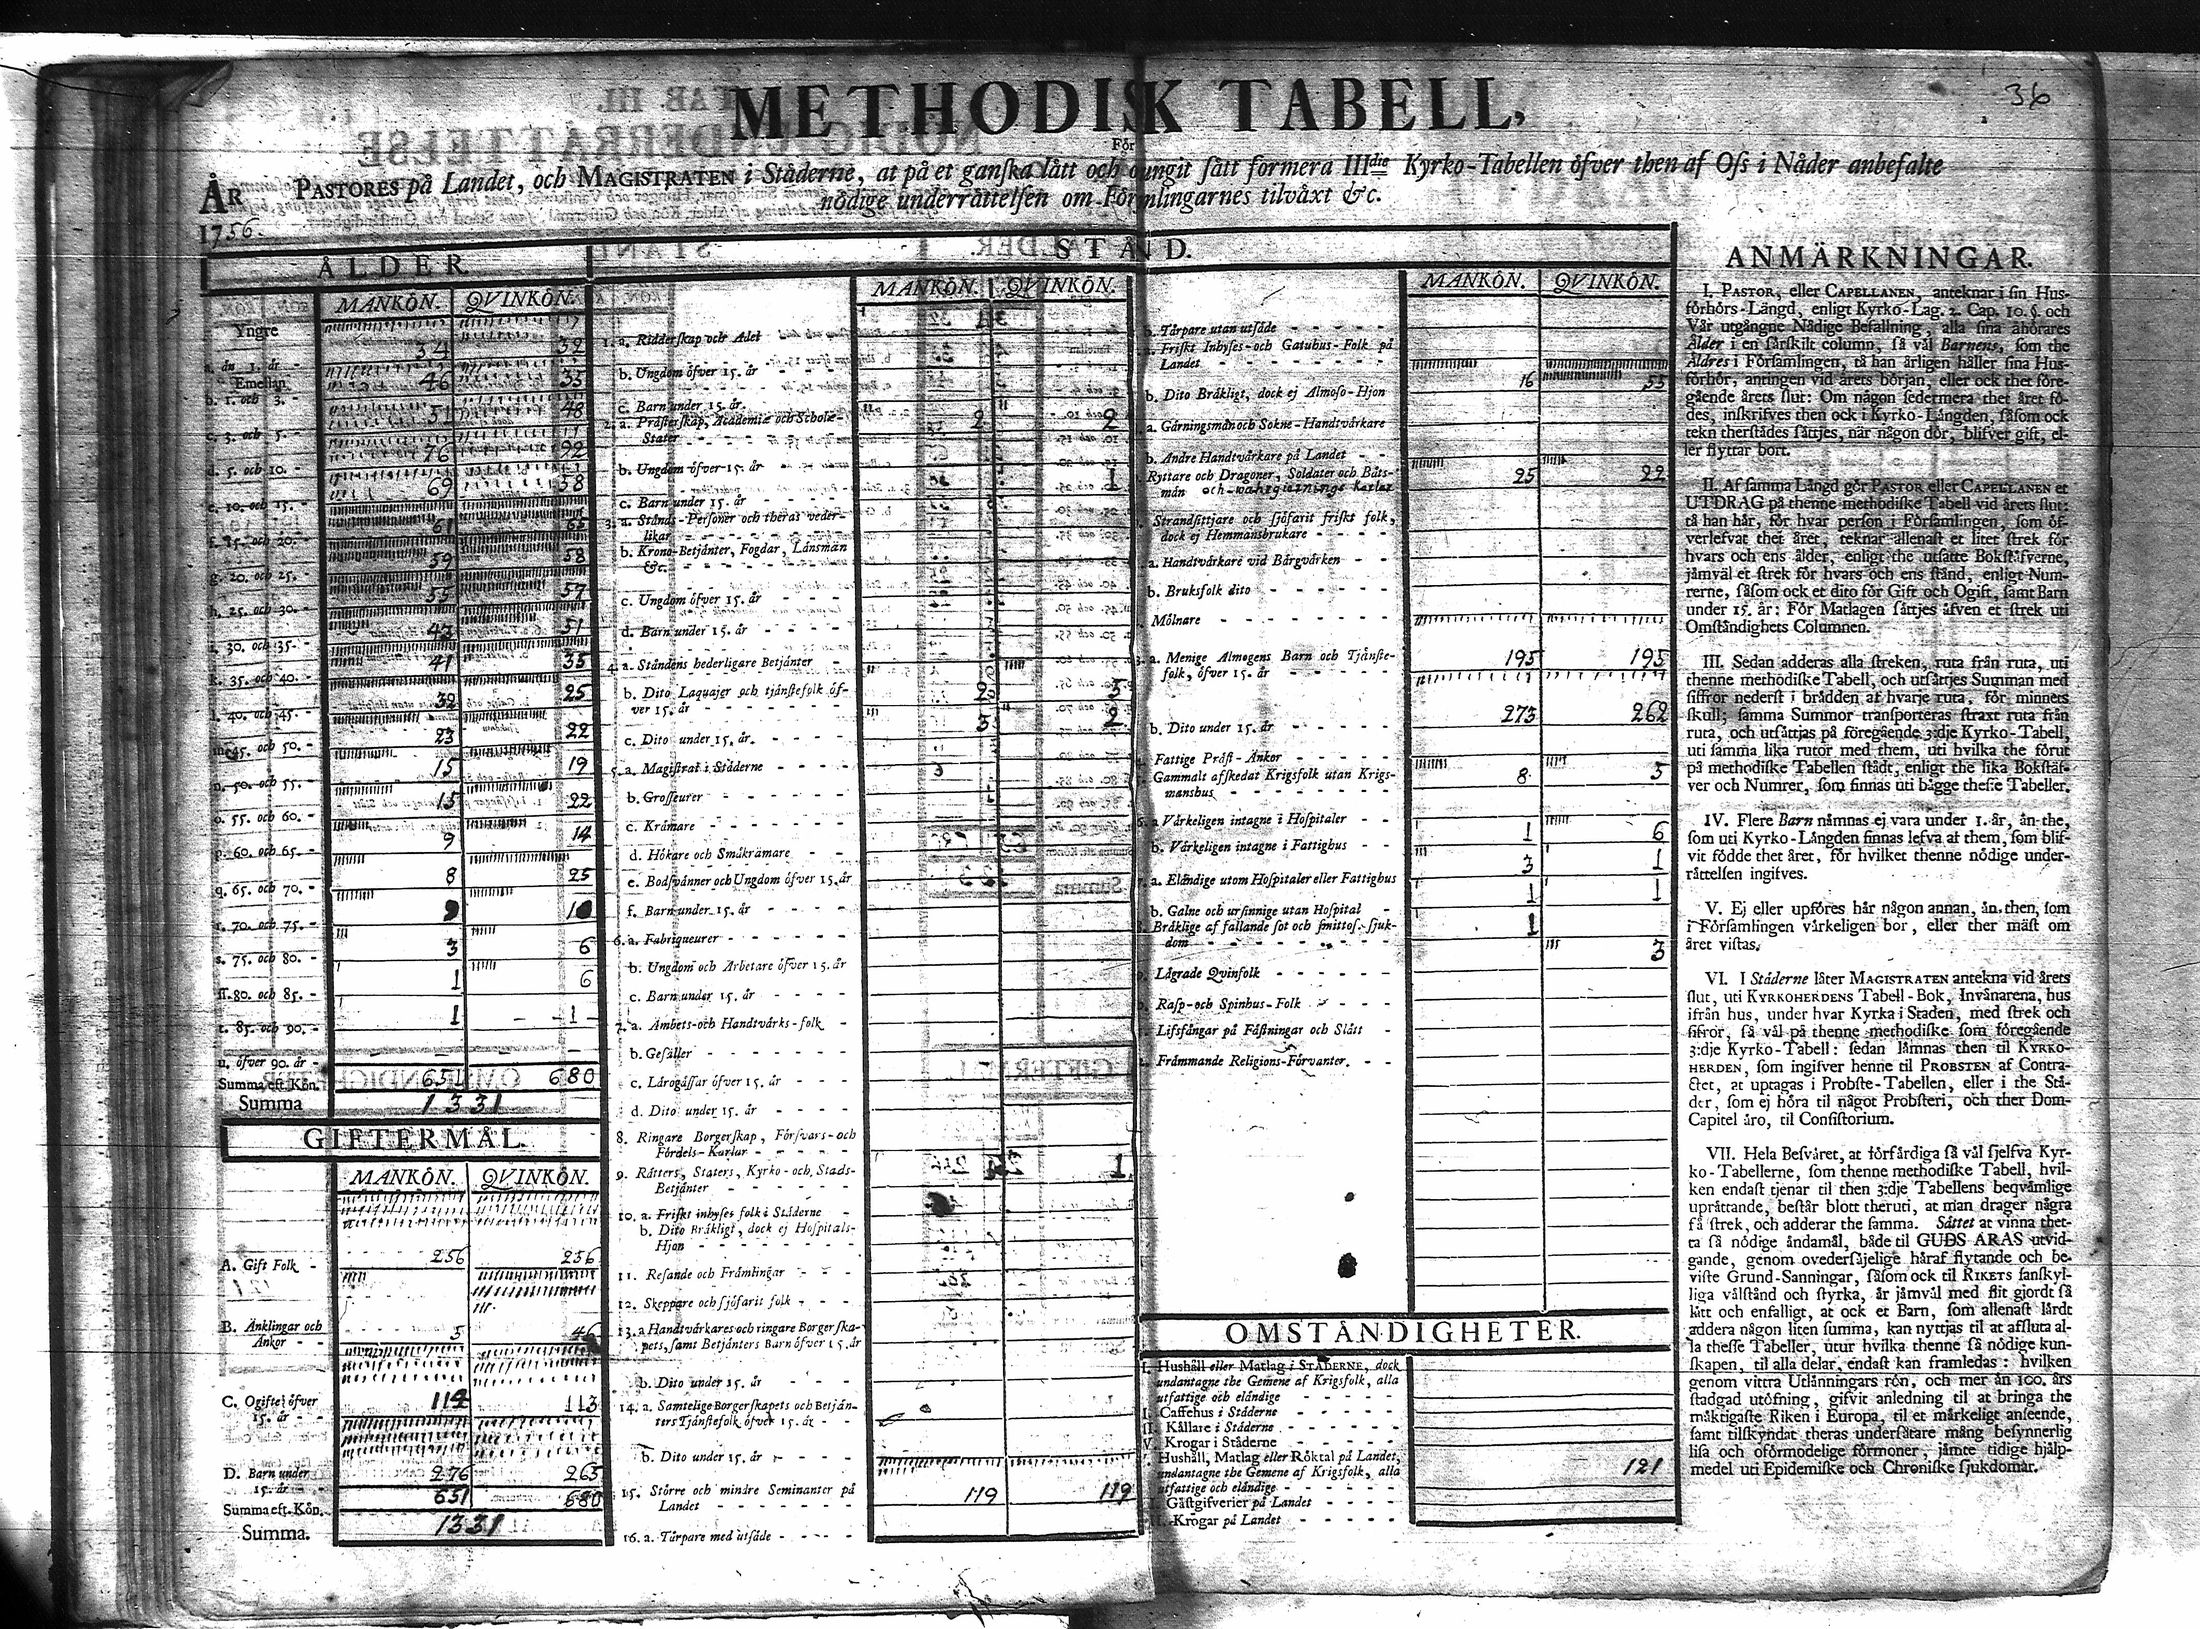 36
METHODISK TABELL,
För
ÅR PASTORES på Landet, och MAGISTRATEN i Städerne, at på et ganska lått och tungit sått formera IIIdie Kyrko-Tabellen öfver then af Oss i Nåder anbefalte
1756. nödige underråttelsen om Församlingarnes tilvåxt &c.
ÅLDER
MANKÖN. QVINKÖN.
Yngre
a. ån 1. år - 34 32
Emellan
b. 1. och 3. - 46 35
c. 3. och 5. - 51 48
d. 5. och 10. - 76 92
e. 10. och 15. - 69 58
f. 15. och 20. - 61 65
g. 20. och 25. 59 58
h. 25. och 30. - 55 57
i. 30. och 35. - 43 51
k. 35. och 40. - 41 35
l. 40. och 45. - 32 25
m. 45. och 50. - 23 22
n. 50. och 55. - 15 19
o. 55. och 60. - 15 22
p. 60. och 65. - 9 14
q. 65. och 70. - 8 25
r. 70. och 75. - 9 10
s. 75. och 80. - 3 6
ſſ. 80. och 85. - 1 6
t. 85. och 90. - 1 1
u. öfver 90. år -
Summa eft. Kön. 651 680
Summa 1331
GIFTERMÅL.
MANKÖN. QVINKÖN.
A. Gift Folk - 256 256
B. Änklingar och
Änkor - - 5 46
C. Ogifte öfver
15. år - - 114 113
D. Barn under
15. år - - 276 265
Summa eft. Kön. 651 680
Summa. 1331
STÅND.
MANKÖN. QVINKÖN.
1. a. Ridderskap och Adel
b. Ungdom öfver 15. år
c. Barn under 15. år
2. a. Pråsterskap, Academiæ och Scholæ-
Stater 2 2
b. Ungdom öfver 15. år 1
c. Barn under 15. år
3. a. Stånds-Personer och therat veder-
likar
b. Krono-Betjånter, Fogdar, Lånsmån
&c.
c. Ungdom öfver 15. år
d. Barn under 15. år
4. a. Ståndens hederligare Betjånter
b. Dito Laquajer och tjånstefolk öf-
ver 15. år 2 5
c. Dito under 15. år. 3 2
5. a. Magistrat i Ståderne
b. Grosseurer
c. Kråmare
d. Hökare och Småkråmare
e. Bodsvånner och Ungdom öfver 15. år
f. Barn under 15. år
6. a. Fabriqueurer
b. Ungdom och Arbetare öfver 15. år
c. Barn under 15. år
7. a. Ämbets-och Handtvårks-folk
b. Gesåller
c. Lårogåssar öfver 15. år
d. Dito under 15. år
8. Ringare Borgerskap, Försvars-och
Fördels-Karlar
9. Råtters, Staters, Kyrko-och Stads-
Betjånter 1
10. a. Friskt inhyses folk i Ståderne
b. Dito Bråkligt, dock ej Hospitals-
Hjon
11. Resande och Fråmlingar
12. Skeppare och sjöfarit folk
13. a Handtvårkares och ringare Borgerska-
pets, samt Betjånters Barn öfver 15. år
b. Dito under 15. år
14. a. Samtelige Borgerskapets och Betjån-
ters Tjånstefolk öfver 15. år
b. Dito under 15. år
15. Större och mindre Seminanter på
Landet 119 119
16. a. Tårpare med utsåde
MANKÖN. QVINKÖN.
b. Tårpare utan utsåde
a. Friskt Inhyses-och Gatuhus-Folk på
Landet 16 55
b. Dito Bråkligt, dock ej Almoso-Hjon
a. Gårningsmån och Sokne-Handtvårkare
b. Andre Handtvårkare på Landet
Ryttare och Dragoner, Soldater och Båts-
mån 25 22
Strandsittjare och sjöfarit friskt folk,
dock ej Hemmansbrukare
a. Handtvårkare vid Bårgvårken
b. Bruksfolk dito
Mölnare
a. Menige Almogens Barn och Tjånste-
folk, öfver 15. år 195 195
b. Dito under 15. år 273 262
Fattige Pråst-Änkor
Gammalt afskedat Krigsfolk utan Krigs-
manshus 8 5
a. Vårkeligen intagne i Hospitaler
b. Vårkeligen intagne i Fattighus 1 6
a. Elåndige utom Hospitaler eller Fattighus 3 1
b. Galne och ursinnige utan Hospital 1 1
Bråklige af fallande sot och smittos. sjuk-
dom 1
3
Lågrade Qvinfolk
Rasp-och Spinhus-Folk
Lifsfångar på Fåstningar och Slått
Fråmmande Religions-Förvanter.
OMSTÅNDIGHETER.
I. Hushåll eller Matlag i STÅDERNE, dock
undantagne the Gemene af Krigsfolk, alla
utfattige och elåndige
Caffehus i Ståderne
Kållare i Ståderne
Krogar i Ståderne
Hushåll, Matlag eller Röktal på Landet,
undantagne the Gemene af Krigsfolk, alla
utfattige och elåndige 121
Gåstgifverier på Landet
Krogar på Landet
ANMÄRKNINGAR.
I. PASTOR, eller CAPELLANEN, anteknar i sin Hus-
förhörs-Långd, enligt Kyrko-Lag. 2. Cap. 10. §. och
Vår utgångne Nådige Befallning, alla sina åhörares
Ålder i en sårskilt column, så vål Barnens, som the
Åldres i Församlingen, tå han årligen håller sina Hus-
förhör, antingen vid årets början, eller ock thet före-
gående årets slut: Om någon sedermera thet året fö-
des, inskrifves then ock i Kyrko-Långden, såsom ock
tekn therstådes såttjes, når någon dör, blifver gift, el-
ler flyttar bort.
II. Af samma Långd gör PASTOR eller CAPELLANEN et
UTDRAG på thenne methodiske Tabell vid årets slut:
tå han hår, för hvar person i Församlingen, som öf-
verlefvat thet året, teknar allenast et litet strek för
hvars och ens ålder, enligt the utsatte Bokståfverne,
jåmvål et strek för hvars och ens stånd, enligt Num-
rerne, såsom ock et dito för Gift och Ogift, samt Barn
under 15. år: För Matlagen såttjes åfven et strek uti
Omståndighets Columnen.
III. Sedan adderas alla streken, ruta från ruta, uti
thenne methodiske Tabell, och utsåttjes Summan med
siffror nederst i brådden af hvarje ruta, för minnets
skull; samma Summor transporteras straxt ruta från
ruta, och utsåttjas på föregående 3:dje Kyrko-Tabell,
uti samma lika rutor med them, uti hvilka the förut
på methodiske Tabellen stådt, enligt the lika Bokståf-
ver och Numrer, som finnas uti bågge thesse Tabeller.
IV. Flere Barn nåmnas ej vara under 1. år, ån the,
som uti Kyrko-Långden finnas lefva af them, som blif-
vit födde thet året, för hvilket thenne nödige under-
råttelsen ingifves.
V. Ej eller upföres hår någon annan, ån then, som
i Församlingen vårkeligen bor, eller ther måst om
året vistas.
VI. I Ståderne låter MAGISTRATEN antekna vid årets
slut, uti KYRKOHERDENS Tabell-Bok, Invånarena, hus
ifrån hus, under hvar Kyrka i Staden, med strek och
siffror, så vål på thenne methodiske som föregående
3:dje Kyrko-Tabell: sedan låmnas then til KYRKO-
HERDEN, som ingifver henne til PROBSTEN af Contra-
ctet, at uptagas i Probste-Tabellen, eller i the Ståd-
der, som ej höra til något Probsteri, och ther Dom-
Capitel åro, til Consistorium.
VII. Hela Besvåret, at förfårdiga så vål sjelfva Kyr-
ko-Tabellerne, som thenne methodiske Tabell, hvil-
ken endast tjenar til then 3:dje Tabellens beqvåmlige
upråttande, består blott theruti, at man drager några
få strek, och adderar the samma. Såttet at vinna thet-
ta så nödige åndamål, både til GUDS ÄRAS utvid-
gande, genom ovedersåjelige håraf flytande och be-
viste Grund-Sanningar, såsom ock til RIKETS sanskyl-
liga vålstånd och styrka, år jåmvål med flit gjordt så
lått och enfalligt, at ock et Barn, som allenast lårdt
addera någon liten summa, kan nyttjas til at afsluta al-
la thesse Tabeller, utur hvilka thenne så nödige kun-
skapen, til alla delar, endast kan framledas: hvilken
genom vittra Utlånningars rön, och mer ån 100. års
stadgad utöfning, gifvit anledning til at bringa the
måktigaste Riken i Europa, til et mårkeligt anseende,
samt tilskyndat theras undersåtare mång besynnerlig
lisa och oförmodelige förmoner, jåmte tidige hjålp-
medel uti Epidemiske och Chroniske sjukdomar.